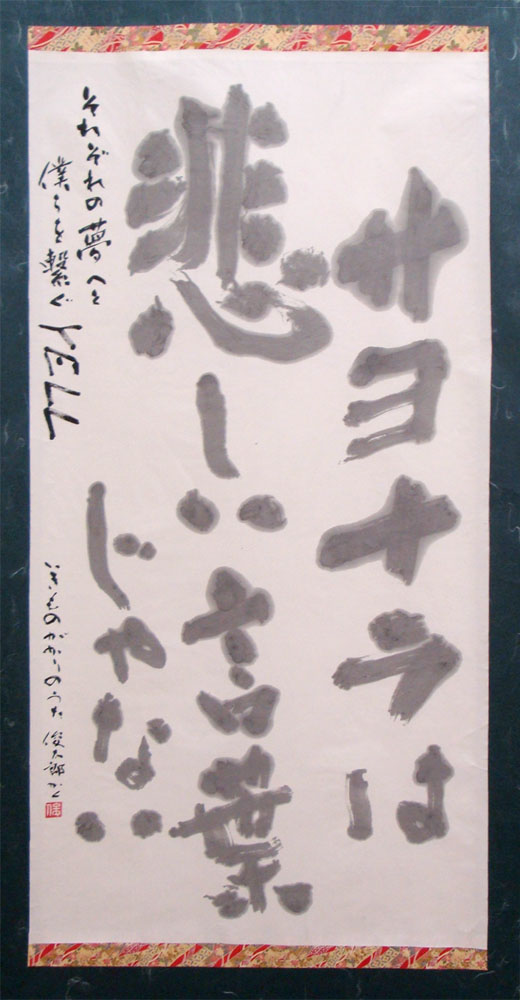 サヨナラは
悲しい言葉
じゃない
それぞれの夢へと
僕らを繋ぐ YELL
いきものがかりのうた 俊太郎かく